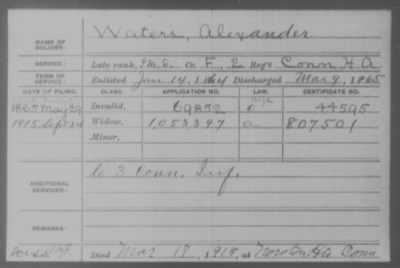 NAME OF SOLDIER: Waters, Alexander
SERVICE: Late rank, Co. F, 2 Reg't Conn H A
TERM OF SERVICE: Enlisted Jan 14, 1864 Discharged Mar 9, 1865
DATE OF FILING. CLASS. APPLICATION NO. LAW. CERTIFICATE NO.
May 29 Invalid, 69852 44595
1915 Sept 24 Widow, 1,053,397 807501
Minor,
ADDITIONAL SERVICES: C 3 Conn. Inf.
REMARKS:
Died Mar 1915, at Noroton Hts Conn